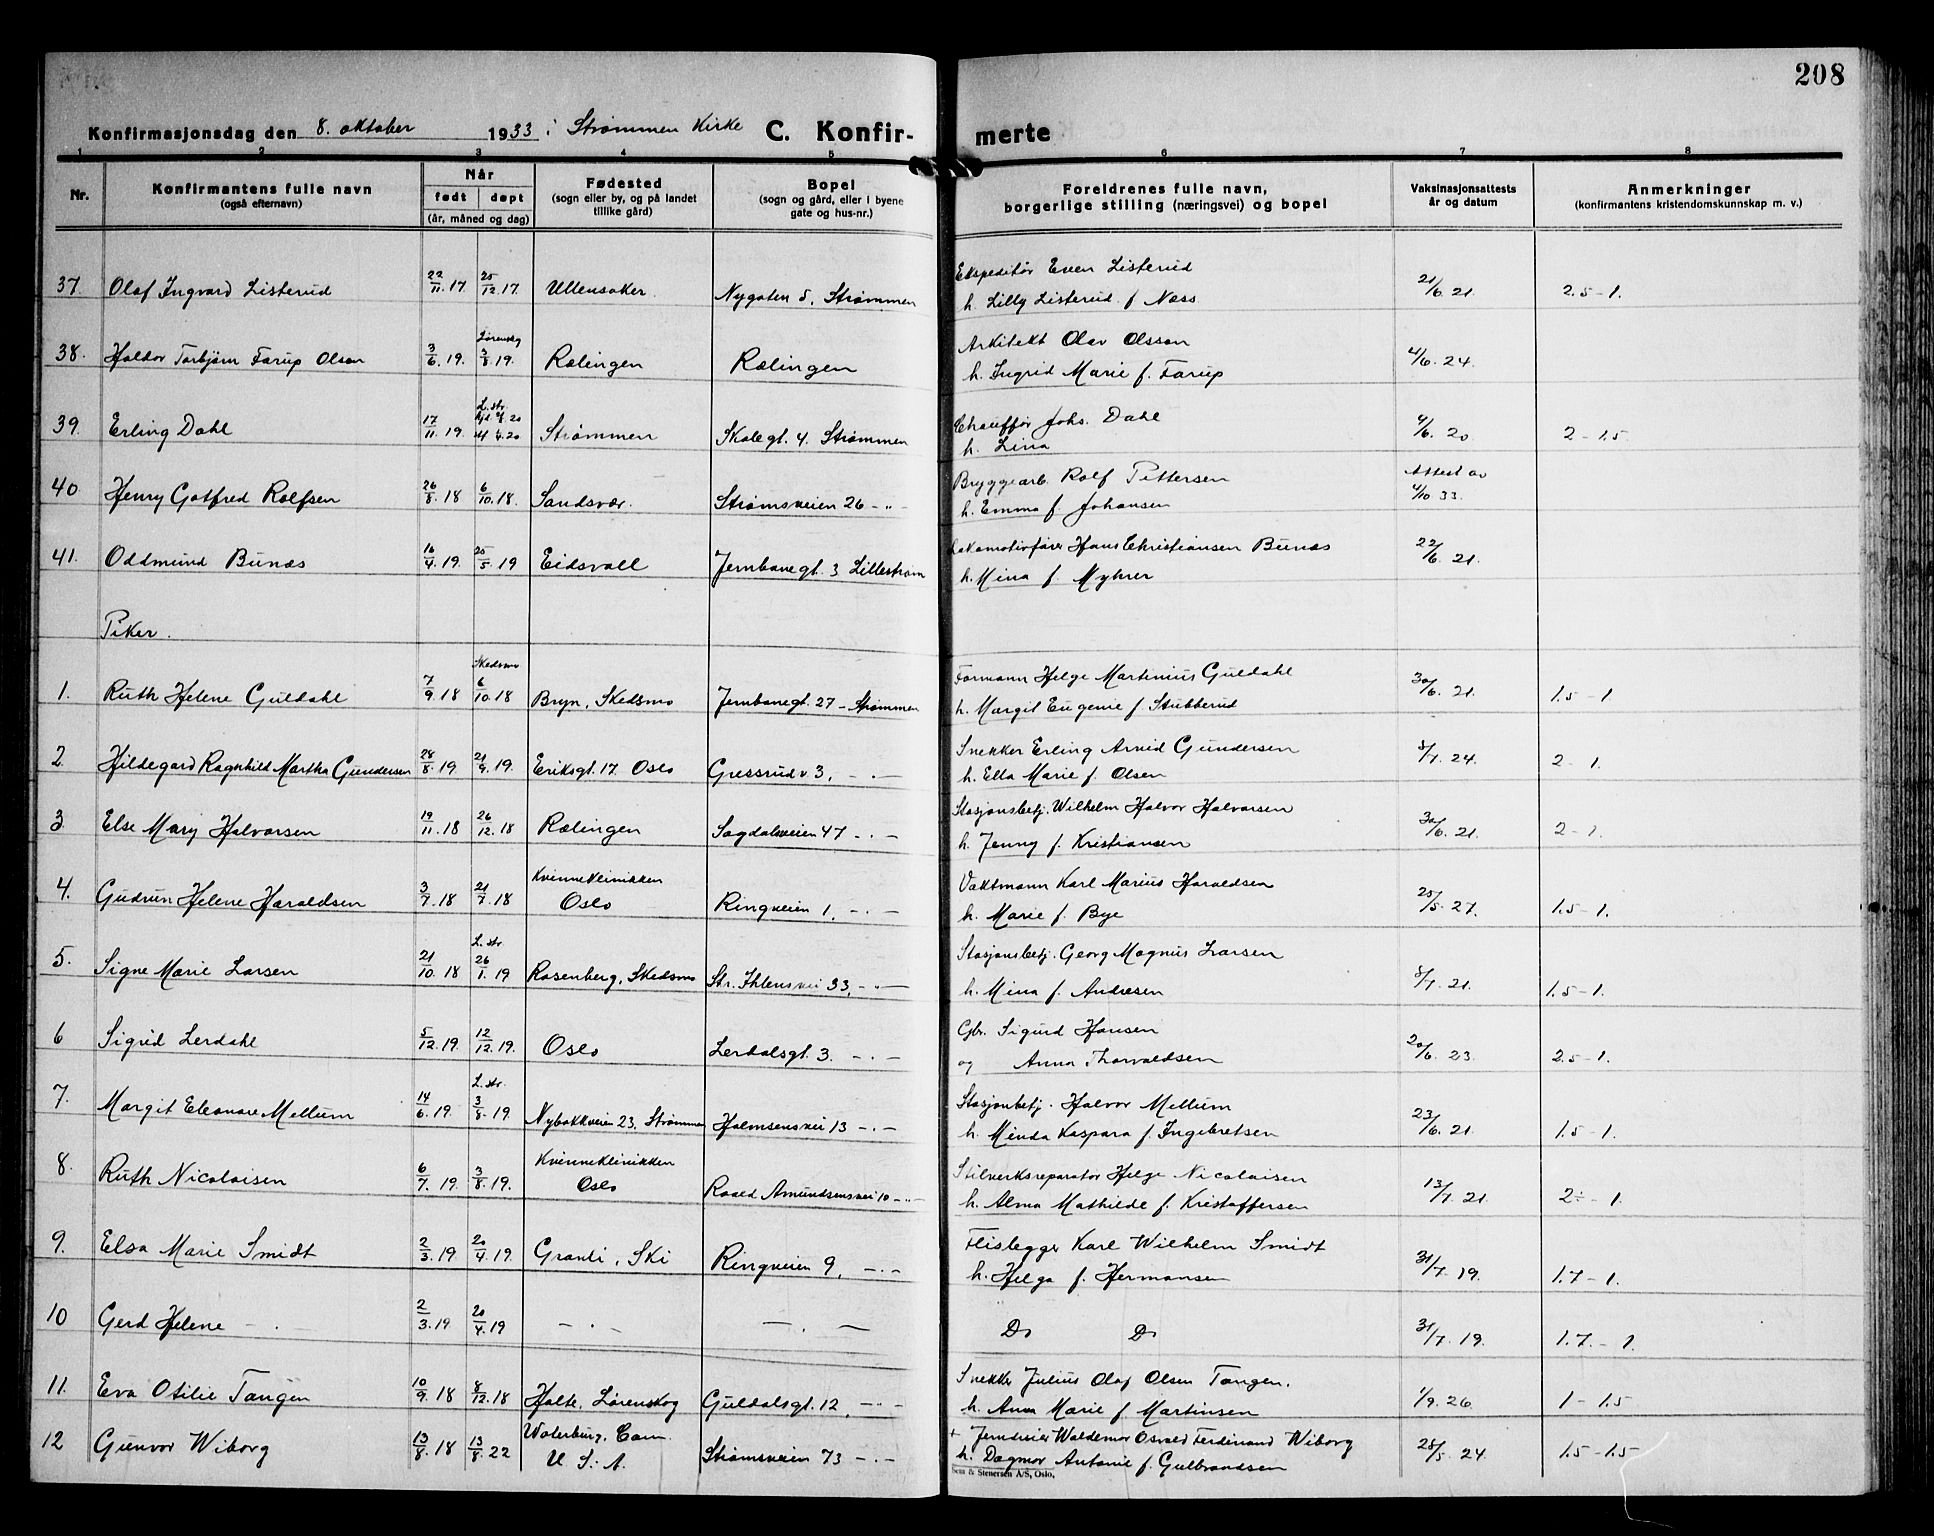 208
Konfirmasjonsdag den 8. oktober 1933 i Strømmen Kirke C. Konfir- merte
1 2 3 4 5 6 7 8
Nr. Konfirmantens fulle navn (også efternavn) Når født døpt (år, måned og dag) Fødested (sogn eller by, og på landet tillike gård) Bopel (sogn og gård, eller i byene gate og hus-nr.) Foreldrenes fulle navn, borgerlige stilling (næringsvei) og bopel Vaksinasjonsattests år og datum Anmerkninger (konfirmantens kristendomskunnskap m. v.)
37. Olaf Ingvard Listerud 22/11. 17 25/12. 17. Ullensaker. Nygaten 5, Strømmen Ekspeditør Even Listerud
h. Lilly Listerud f. Næss 21/6. 21. 2.5 - 1.
38. Haldor Torbjørn Farup Olsen 3/6. 19. Lørenskog 3/8. 19. Rælingen Rælingen Arkitekt Olav Olsson
h. Ingrid Marie f. Farup 4/6. 24.
39. Erling Dahl 17/11. 19. L. str. Strømmen Skolegt. 4. Strømmen Chauffør Johs. Dahl
h. Lina 4/6. 20 2 - 1.5
40 Henry Gotfred Rolfsen 26/8. 18 6/10. 18. Sandsvær. Strømsveien 26 - " - Bryggearb. Rolf Pettersen
h. Emma f. Johansen Attest av 4/10 33.
41. Oddmund Bunæs 16/4. 19. 25/5. 19 Eidsvoll Jernbanegt. 3 Lillestrøm Lokomotivfører Hans Christiansen Bunæs
h. Mina f. Myhrer 22/6. 21.
Piker.
1. Ruth Helene Guldahl 7/9. 18 Skedsmo 6/10. 18 Bryn, Skedsmo Jernbanegt. 27 - Strømmen Formann Helge Martinius Guldahl
h. Margit Eugenie f. Stubberud 30/6. 21. 1.5 - 1
2. Hildegard Ragnhild Martha Gundersen 28/8. 19. 21/9. 19. Eriksgt. 17. Oslo Gressrudv. 3, - " - Snekker Erling Arvid Gundersen
h. Ella Marie f. Olsen 8/7. 24. 2 - 1.
3. Else Mary Halvorsen 19/11. 18 26/12. 18 Rælingen Sagdalsveien 47 - " - Stasjonsbetj. Wilhelm Halvor Halvorsen
h. Jenny f. Kristiansen 30/6. 21. 2 - 1.
4. Gudrun Helene Haraldsen 3/7. 18 21/7. 18 Kvinneklinikken Oslo Ringveien 1, - " - Vaktmann Karl Marius Haraldsen
h. Marie f. Bye 25/5. 27. 1.5 - 1.
5. Signe Marie Larsen 21/10. 18 L. str. 26/1. 19 Rosenberg, Skedsmo Str. Ihlensvei 33, - " - Stasjonsbetj. Georg Magnus Larsen
h. Mina f. Andresen 8/7. 21. 1.5 - 1.
6 Sigrid Lerdahl 5/12. 19. 12/12. 19. Oslo Lerdalsgt. 3. - " - Gbr. Sigurd Hansen
og Anna Thorvaldsen 20/6. 23. 2.5 - 1.
7. Margit Eleonore Mellum 14/6. 19. L. str. 3/8. 19 Nybakkveien 23, Strømmen Holmsensvei 13 - " - Stasjonbetj. Halvor Mellum
h. Minda Kaspara f. Ingebretsen 23/6. 21 1.5 - 1.
8. Ruth Nicolaisen 6/7. 19. 3/8. 19. Kvinneklinikken Oslo Roald Amundsensvei 10 - " - Stilverksreparatør Helge Nicolaisen
h. Alma Mathilde f. Kristoffersen 13/7. 21 2÷ - 1.
9. Elsa Marie Smidt 2/3. 19 20/4. 19. Granli, Ski Ringveien 9, - " - Flislegger Karl Wilhelm Smidt
h. Helga f. Hermansen 31/7. 19. 1.7 - 1.
10 Gerd Helene - " - 2/3. 19 20/4. 19 - " - - " - Do Do 31/7. 19. 1.7. - 1.
11. Eva Otilie Tangen 10/9. 18 8/12. 18 Holte, Lørenskog Guldalsgt. 12, - " - Snekker Julius Olaf Olsen Tangen.
h. Anna Marie f. Martinsen 1/9. 26 1 - 1.5
12 Gunvor Wiborg 13/8. 18 13/8. 22 Waterburg, Conn. U. S. A. Strømsveien 73 - " - + Jerndreier Waldemar Osvald Ferdinand Wiborg
h. Dagmar Antonie f. Gulbrandsen 28/5. 24. 1.5 - 1.5
Sem & Stenersen A/S, Oslo.